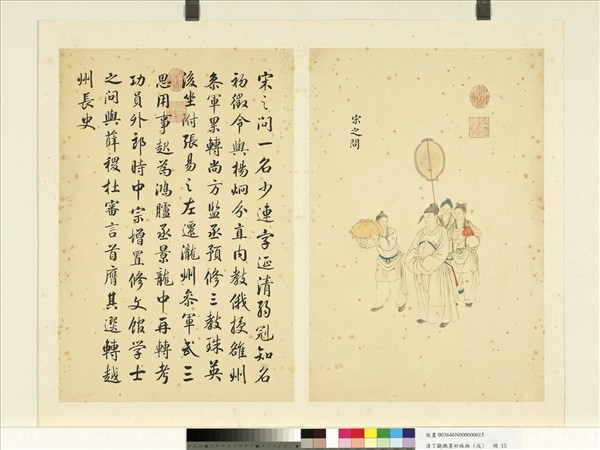 宋之問
宋之問一名少連字延清弱冠知名
初徵令與楊炯分直内教俄授雒州
叅軍累轉尚方監丞預修三教珠英
後坐附張易之左遷瀧州叅軍武三
思用事起為鴻臚丞景龍中再轉考
功員外郎時中宗增置修文館学士
之問與薛稷杜審言首膺其選轉越
州長史
故畫 003646N000000015
清丁觀鵬墨妙珠林 15